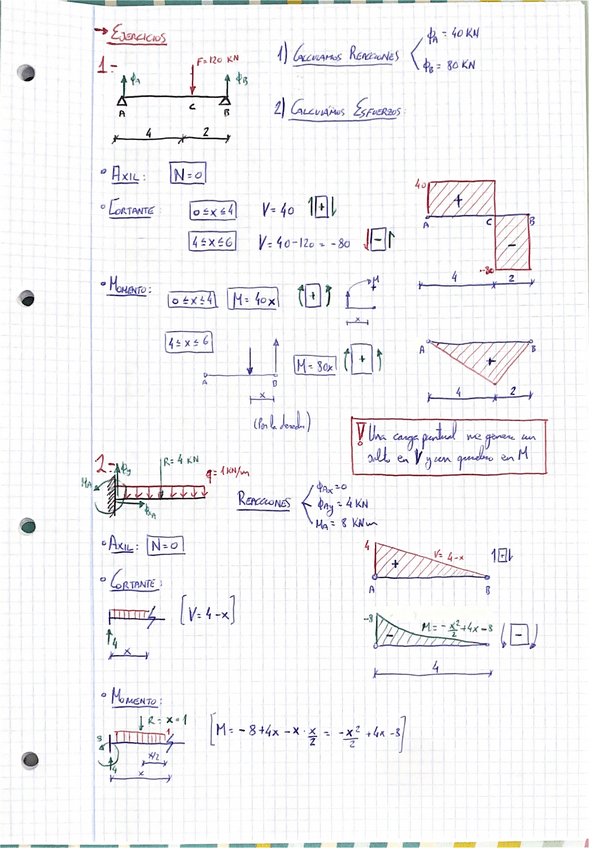 → EJERCICIOS
1-
F=120 KN
ϕA
ϕB
A
C
B
4
2
1) CALCULAMOS REACCIONES
ϕA = 40 KN
ϕB = 80 KN
2) CALCULAMOS ESFUERZOS
• AXIL: N=0
• CORTANTE: 0≤x≤4 V=40 ↑[+]↓
4≤x≤6 V=40-120=-80 ↓[-]↑
40
+
A
C
B
-
-80
4
2
• MOMENTO: 0≤x≤4 M=40x (+)
M
x
4≤x≤6
A
B
x
M=80x (+)
(Por la derecha)
A
B
+
4
2
! Una carga puntual me genera un
salto en V y un quiebro en M
2-
MA
ϕAy
R=4 KN
q=1KN/m
ϕA
REACCIONES
ϕAx=0
ϕAy=4 KN
MA=8 KNm
• AXIL: N=0
4
+
V=4-x
↑[+]↓
A
B
• CORTANTE:
[V=4-x]
4
x
-8
-
M=-x²/2+4x-8
(-)
4
• MOMENTO:
R=x·1
1
8
4
x/2
x
[M=-8+4x-x·x/2=-x²/2+4x-8]